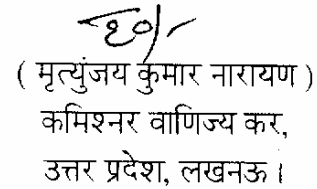 ( मृत्युंजय कुमार नारायण )
कमिश्नर वाणिज्य कर,
उत्तर प्रदेश, लखनऊ।